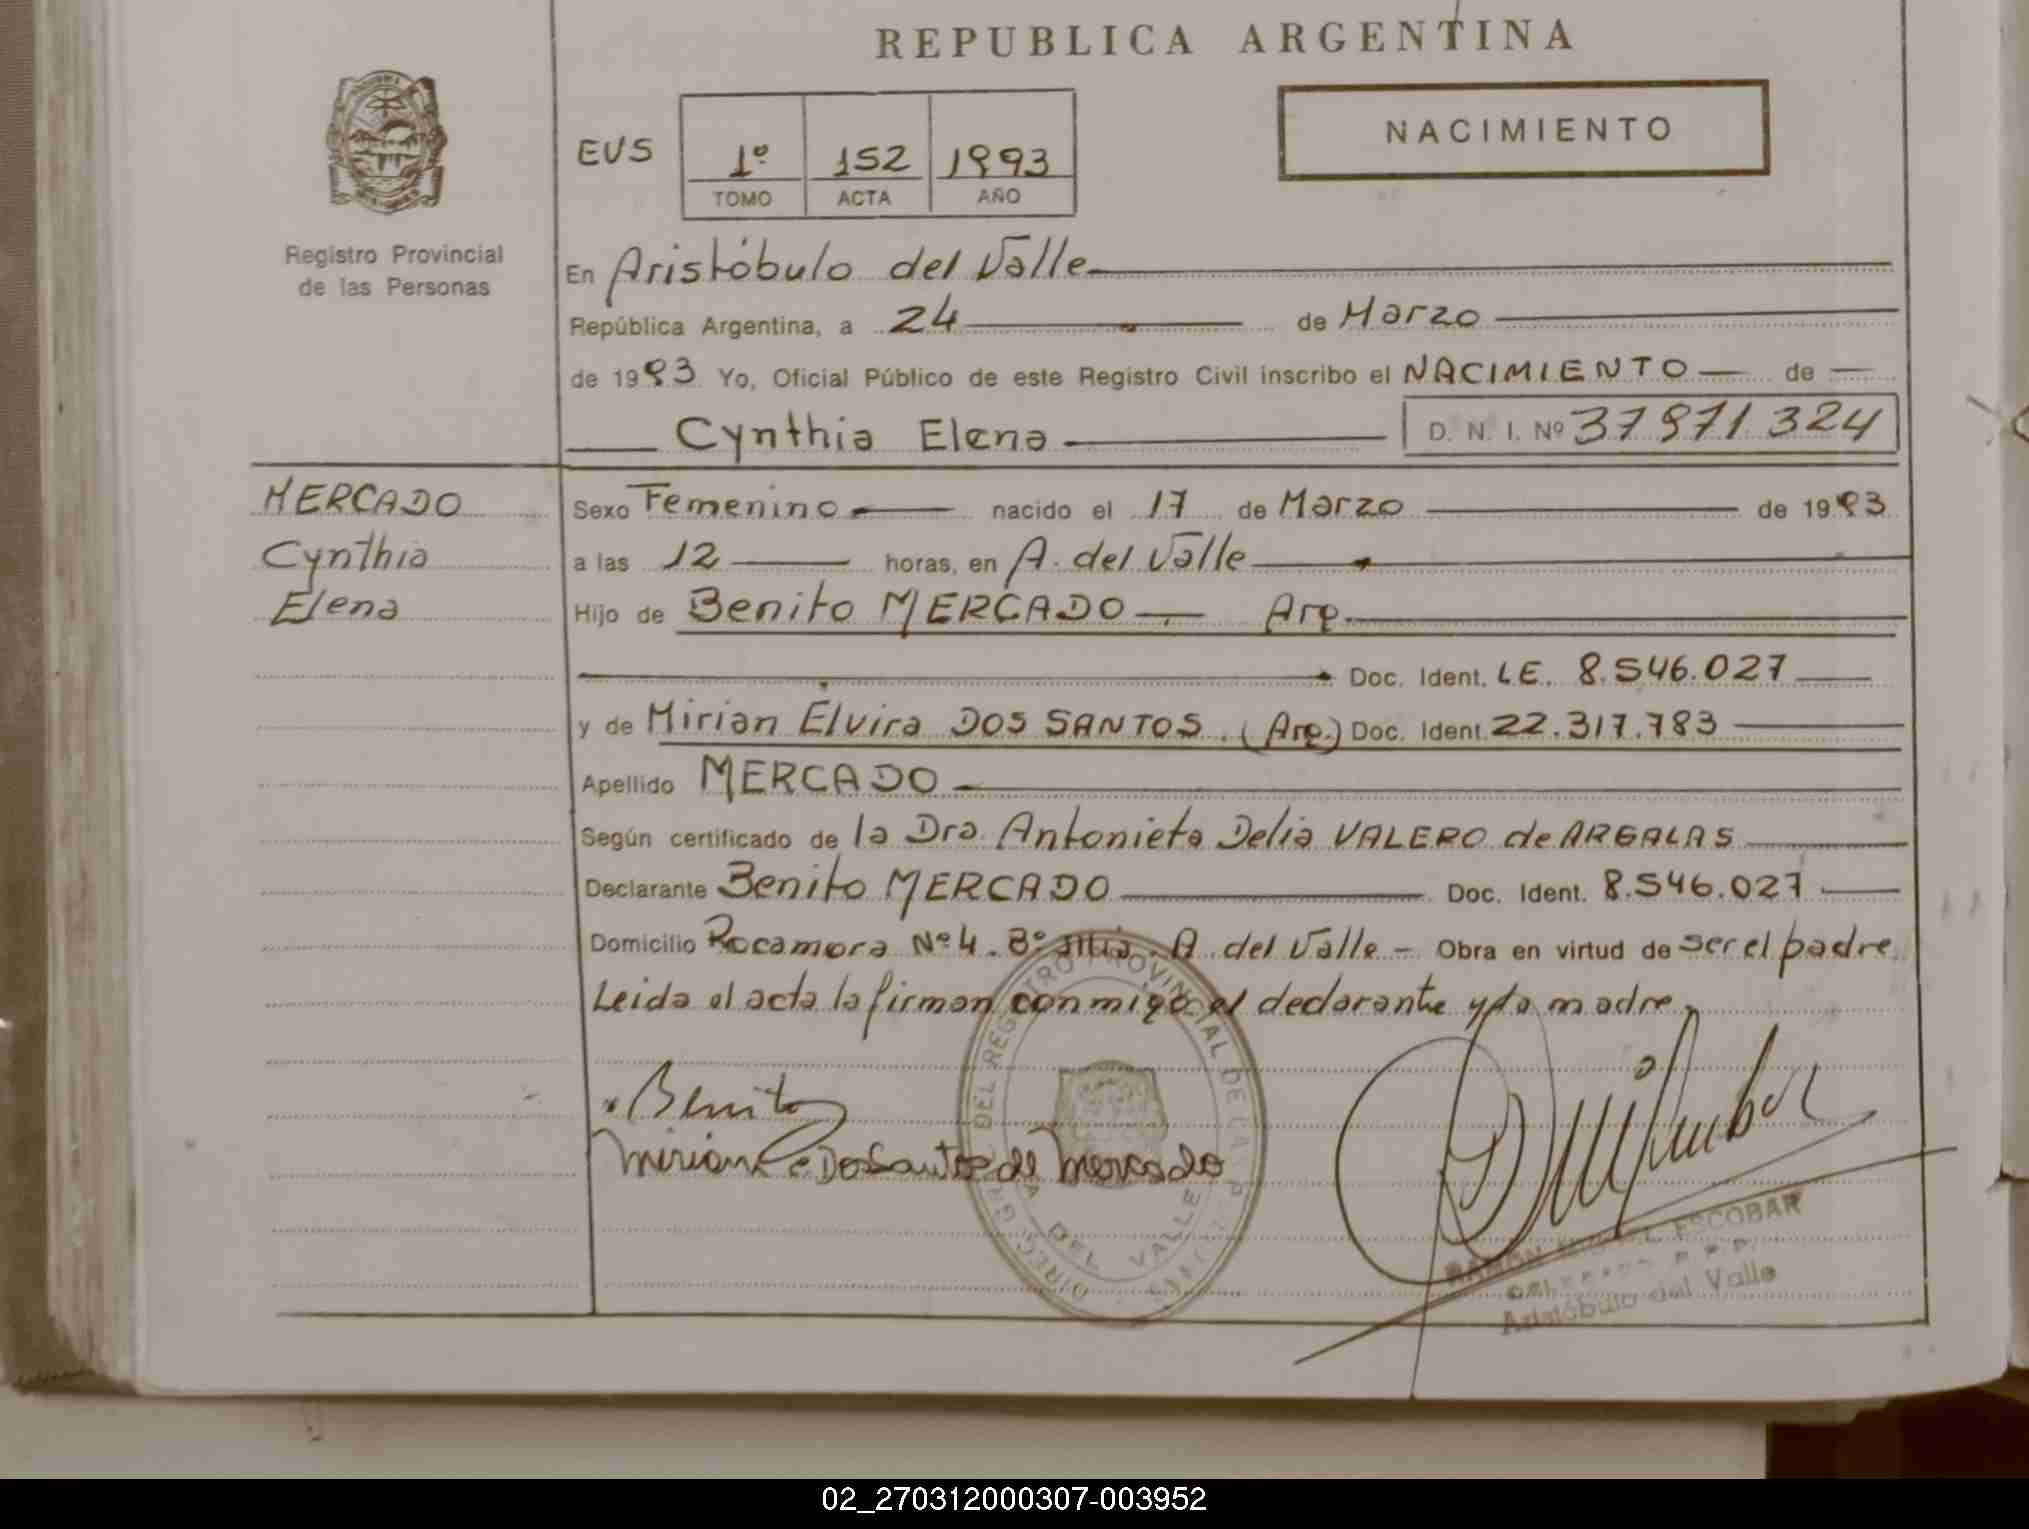 REPUBLICA ARGENTINA
NACIMIENTO
EUS
1º 152 1993
TOMO ACTA AÑO
Registro Provincial
de las Personas
En Aristóbulo del Valle
República Argentina, a 24 de Marzo
de 1993 Yo, Oficial Público de este Registro Civil inscribo el NACIMIENTO de
Cynthia Elena D. N. I. Nº 37.971.324
MERCADO
Cynthia
Elena
Sexo Femenino nacido el 17 de Marzo de 1993
a las 12 horas, en A. del Valle
Hijo de Benito MERCADO Arg.
Doc. Ident. L.E. 8.546.027
y de Mirian Elvira DOS SANTOS. (Arg.) Doc. Ident. 22.317.783
Apellido MERCADO
Según certificado de la Dra. Antonieta Delia VALERO de ARGALAS
Declarante Benito MERCADO Doc. Ident. 8.546.027
Domicilio Rocamora Nº 4. Bº A. del Valle - Obra en virtud de ser el padre
Leida el acta la firman conmigo el declarante y la madre.
Benito
Mirian E Dos Santos de Mercado
DEL REGISTRO PROVINCIAL DE LA
DEL VALLE
RAMÓN MIGUEL ESCOBAR
Aristóbulo del Valle
02_270312000307-003952